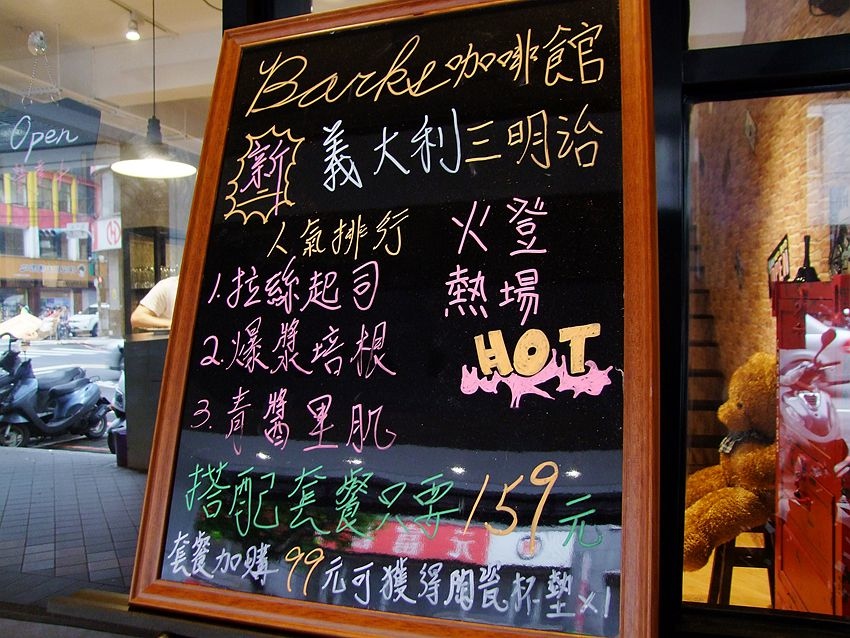 Barks咖啡館
新 義大利三明治
人氣排行
火登
熱場
HOT
1.拉絲起司
2.爆漿培根
3.青醬里肌
搭配套餐只要159元
套餐加購99元可獲得陶瓷杯墊x1
Open